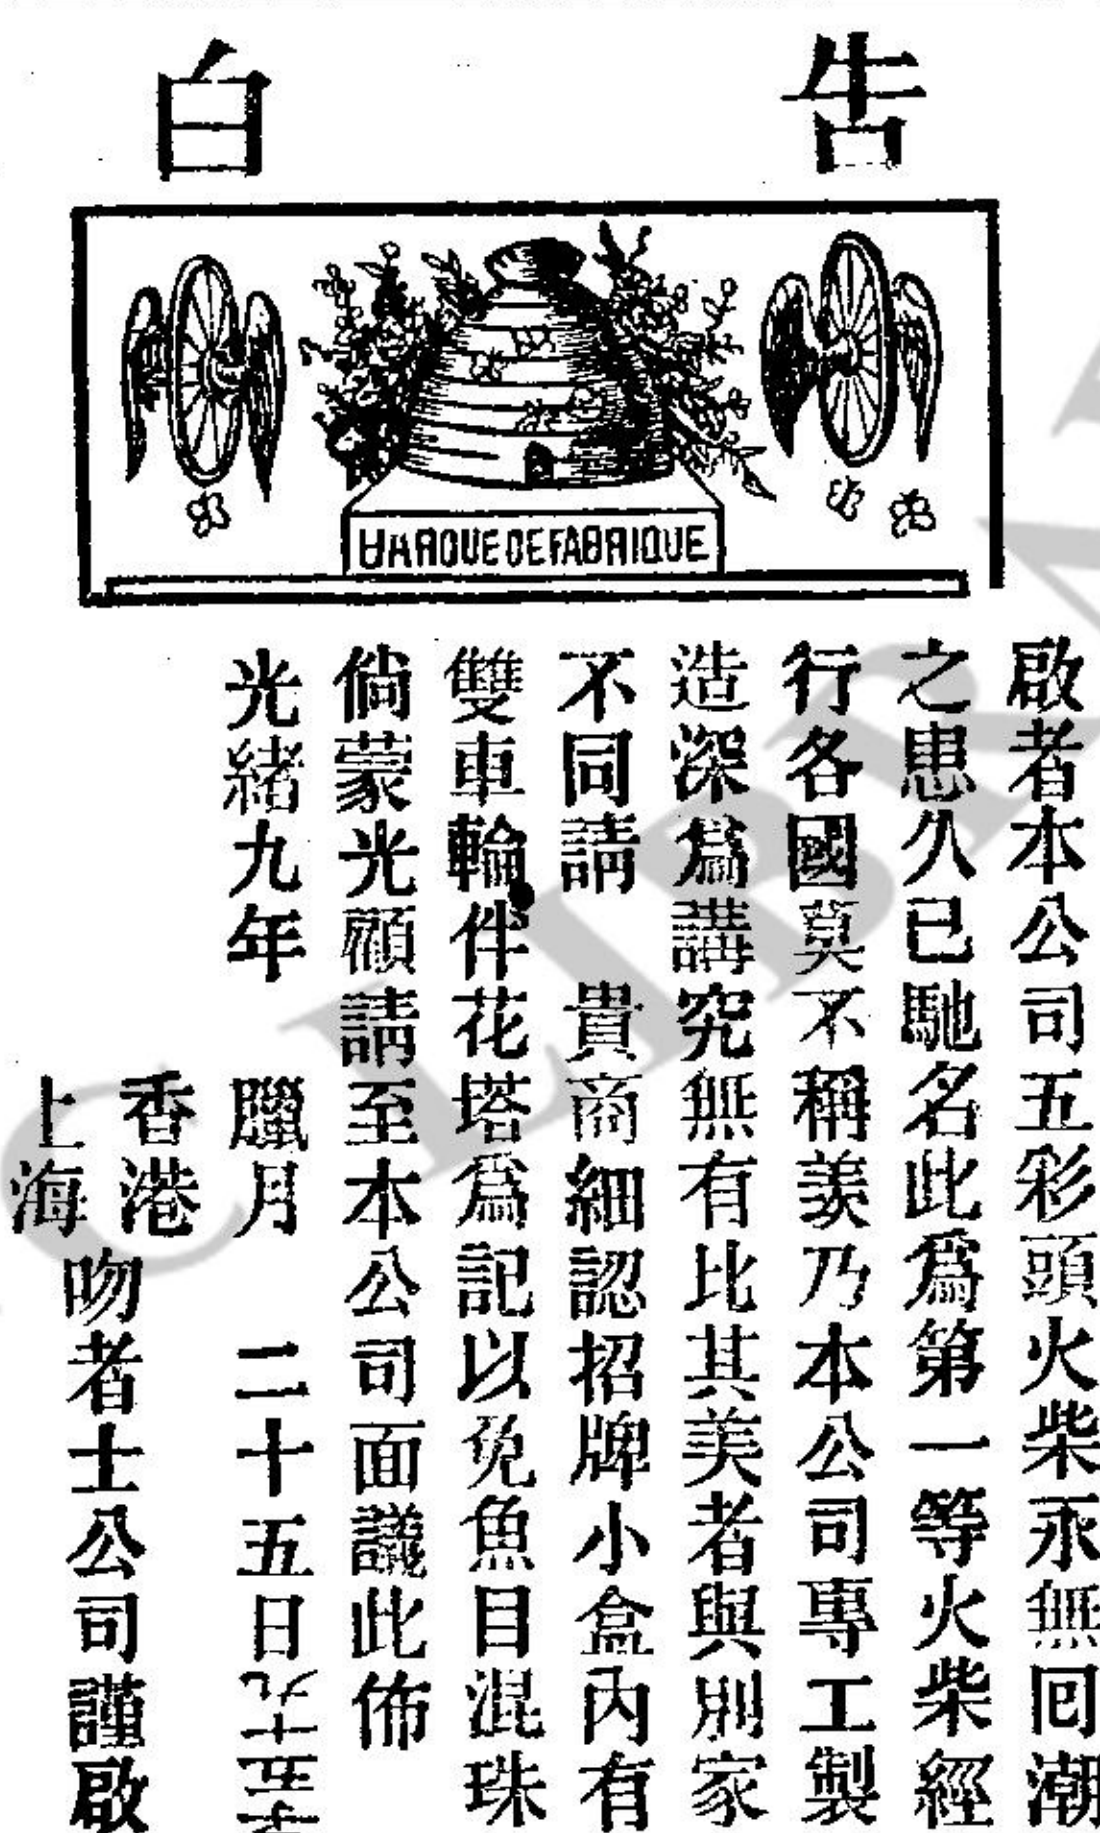 告白
MARQUE DE FABRIQUE
啟者本公司五彩頭火柴永無囘潮
之患久已馳名此爲第一等火柴經
行各國莫不稱羨乃本公司專工製
造深爲講究無有比其美者與別家
不同請 貴商細認招牌小盒內有
雙車輪伴花塔爲記以免魚目混珠
倘蒙光顧請至本公司面議此佈
光緒九年 臘月 二十五日
香港
上海
吻者士公司謹啟